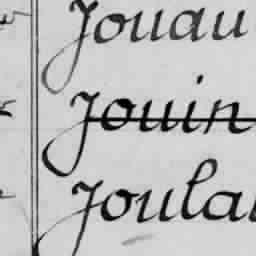 Jouau
Jouin
Joulal